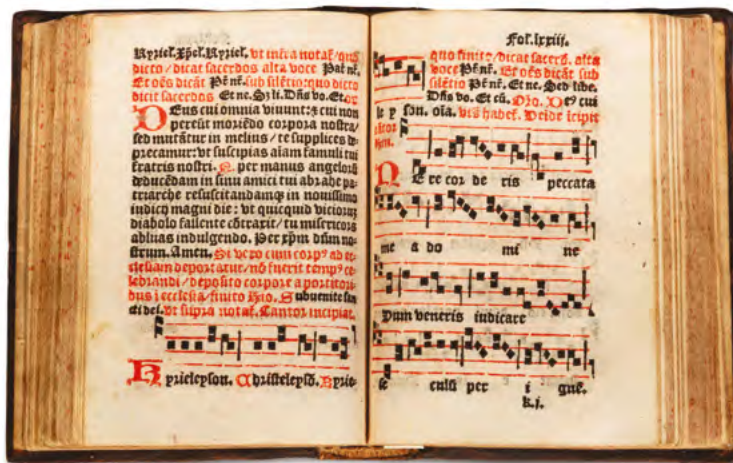 Kyriel. Xp̄el. Kyriel. vt infra notat̄/ quo
dicto/ dicat sacerdos alta voce Pat̄ nr̄.
Et oēs dicāt Pr̄ nr̄. sub silētio: quo dicto
dicit sacerdos Et ne. S; li. Dn̄s vo. Et. or̄
DEus cui omnia viuunt: ⁊ cui non
pereūt moriēdo corpora nostra/
sed mutātur in melius/ te supplices de
precamur: vt suscipias aīam famuli tui
fratris nostri. N. per manus angeloꝝ
deducēdam in sinu amici tui abrahe pa
triarche resuscitandamqꝫ in nouissimo
iudicij magni die: vt quicquid vicioruꝫ
diabolo fallente cōtraxit/ tu misericors
abluas indulgendo. Per xp̄m dn̄m no
strum. Amen. Si vero cum corpꝰ ad ec
clesiam deportatur/ nō fuerit tempꝰ ce
lebrandi/ deposito corpore a portitori
bus ī ecclesia/ finito Rīo. Subuenite san
cti dei. vt supra notat̄. Cantor incipiat.
Kyrieleyson. Christeleysō. Kyrie
Fol. lxxiij.
quo finito/ dicat sacerd. alta
voce Pr̄ nr̄. Et oēs dicāt sub
silētio Pr̄ nr̄. Et ne. Sed libe.
Dn̄s vo. Et cū. Oro. Deꝰ cui
le y son. oīa. vts habet̄. Deīde icipit
cātor
NE re cor de ris peccata
me a do mi ne
Dum veneris iudicare
se culū per i gnē.
k.j.